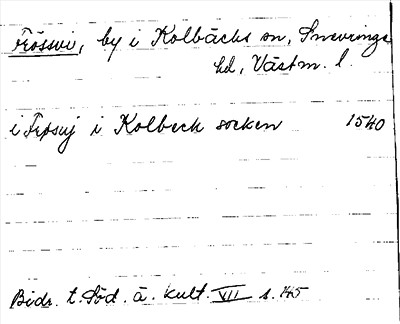 Frössvi, by i Kolbäcks sn, Snevringe
hd, Västm. l.
i Frösvj i Kolbeck socken 1540
Bidr. t. Söd. ä. kult. VII s. 145